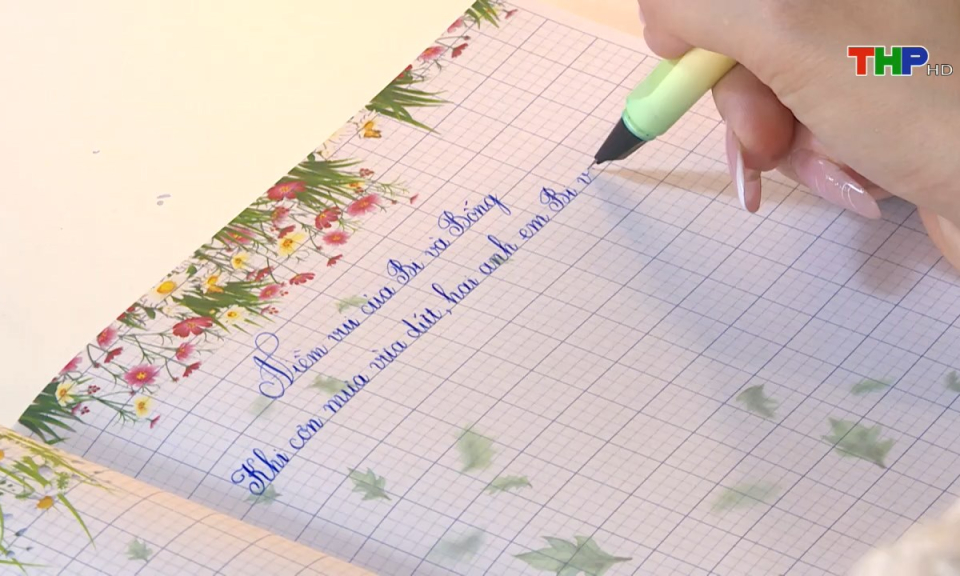 THP HD
Niềm vui của Bi và Bống
Khi cơn mưa vừa dứt, hai anh em Bi v